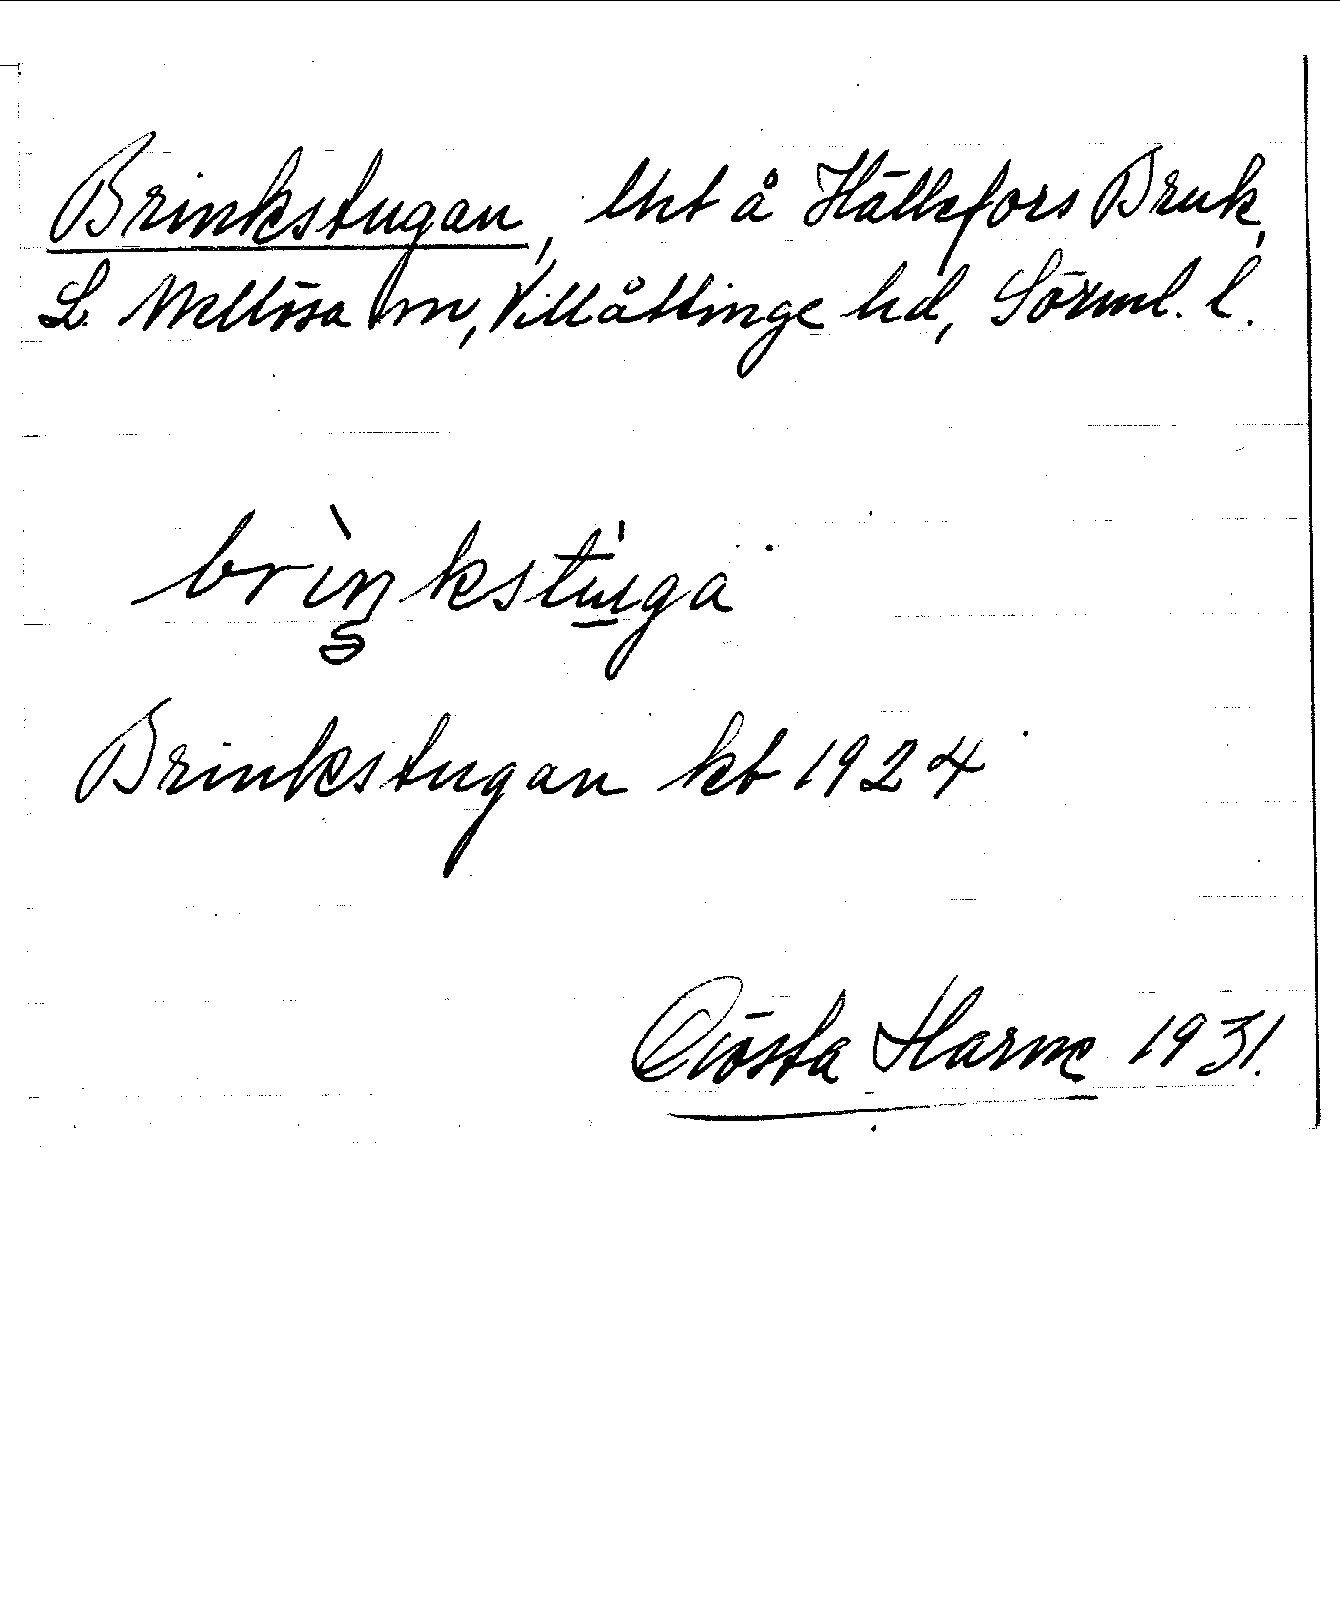 Brinkstugan, lht å Hällefors Bruk,
L. Mellösa sn, Villåttinge hd, Sörml. l.
brìŋkstu̲ga
Brinkstugan kb 1924
Gösta Harme 1931.